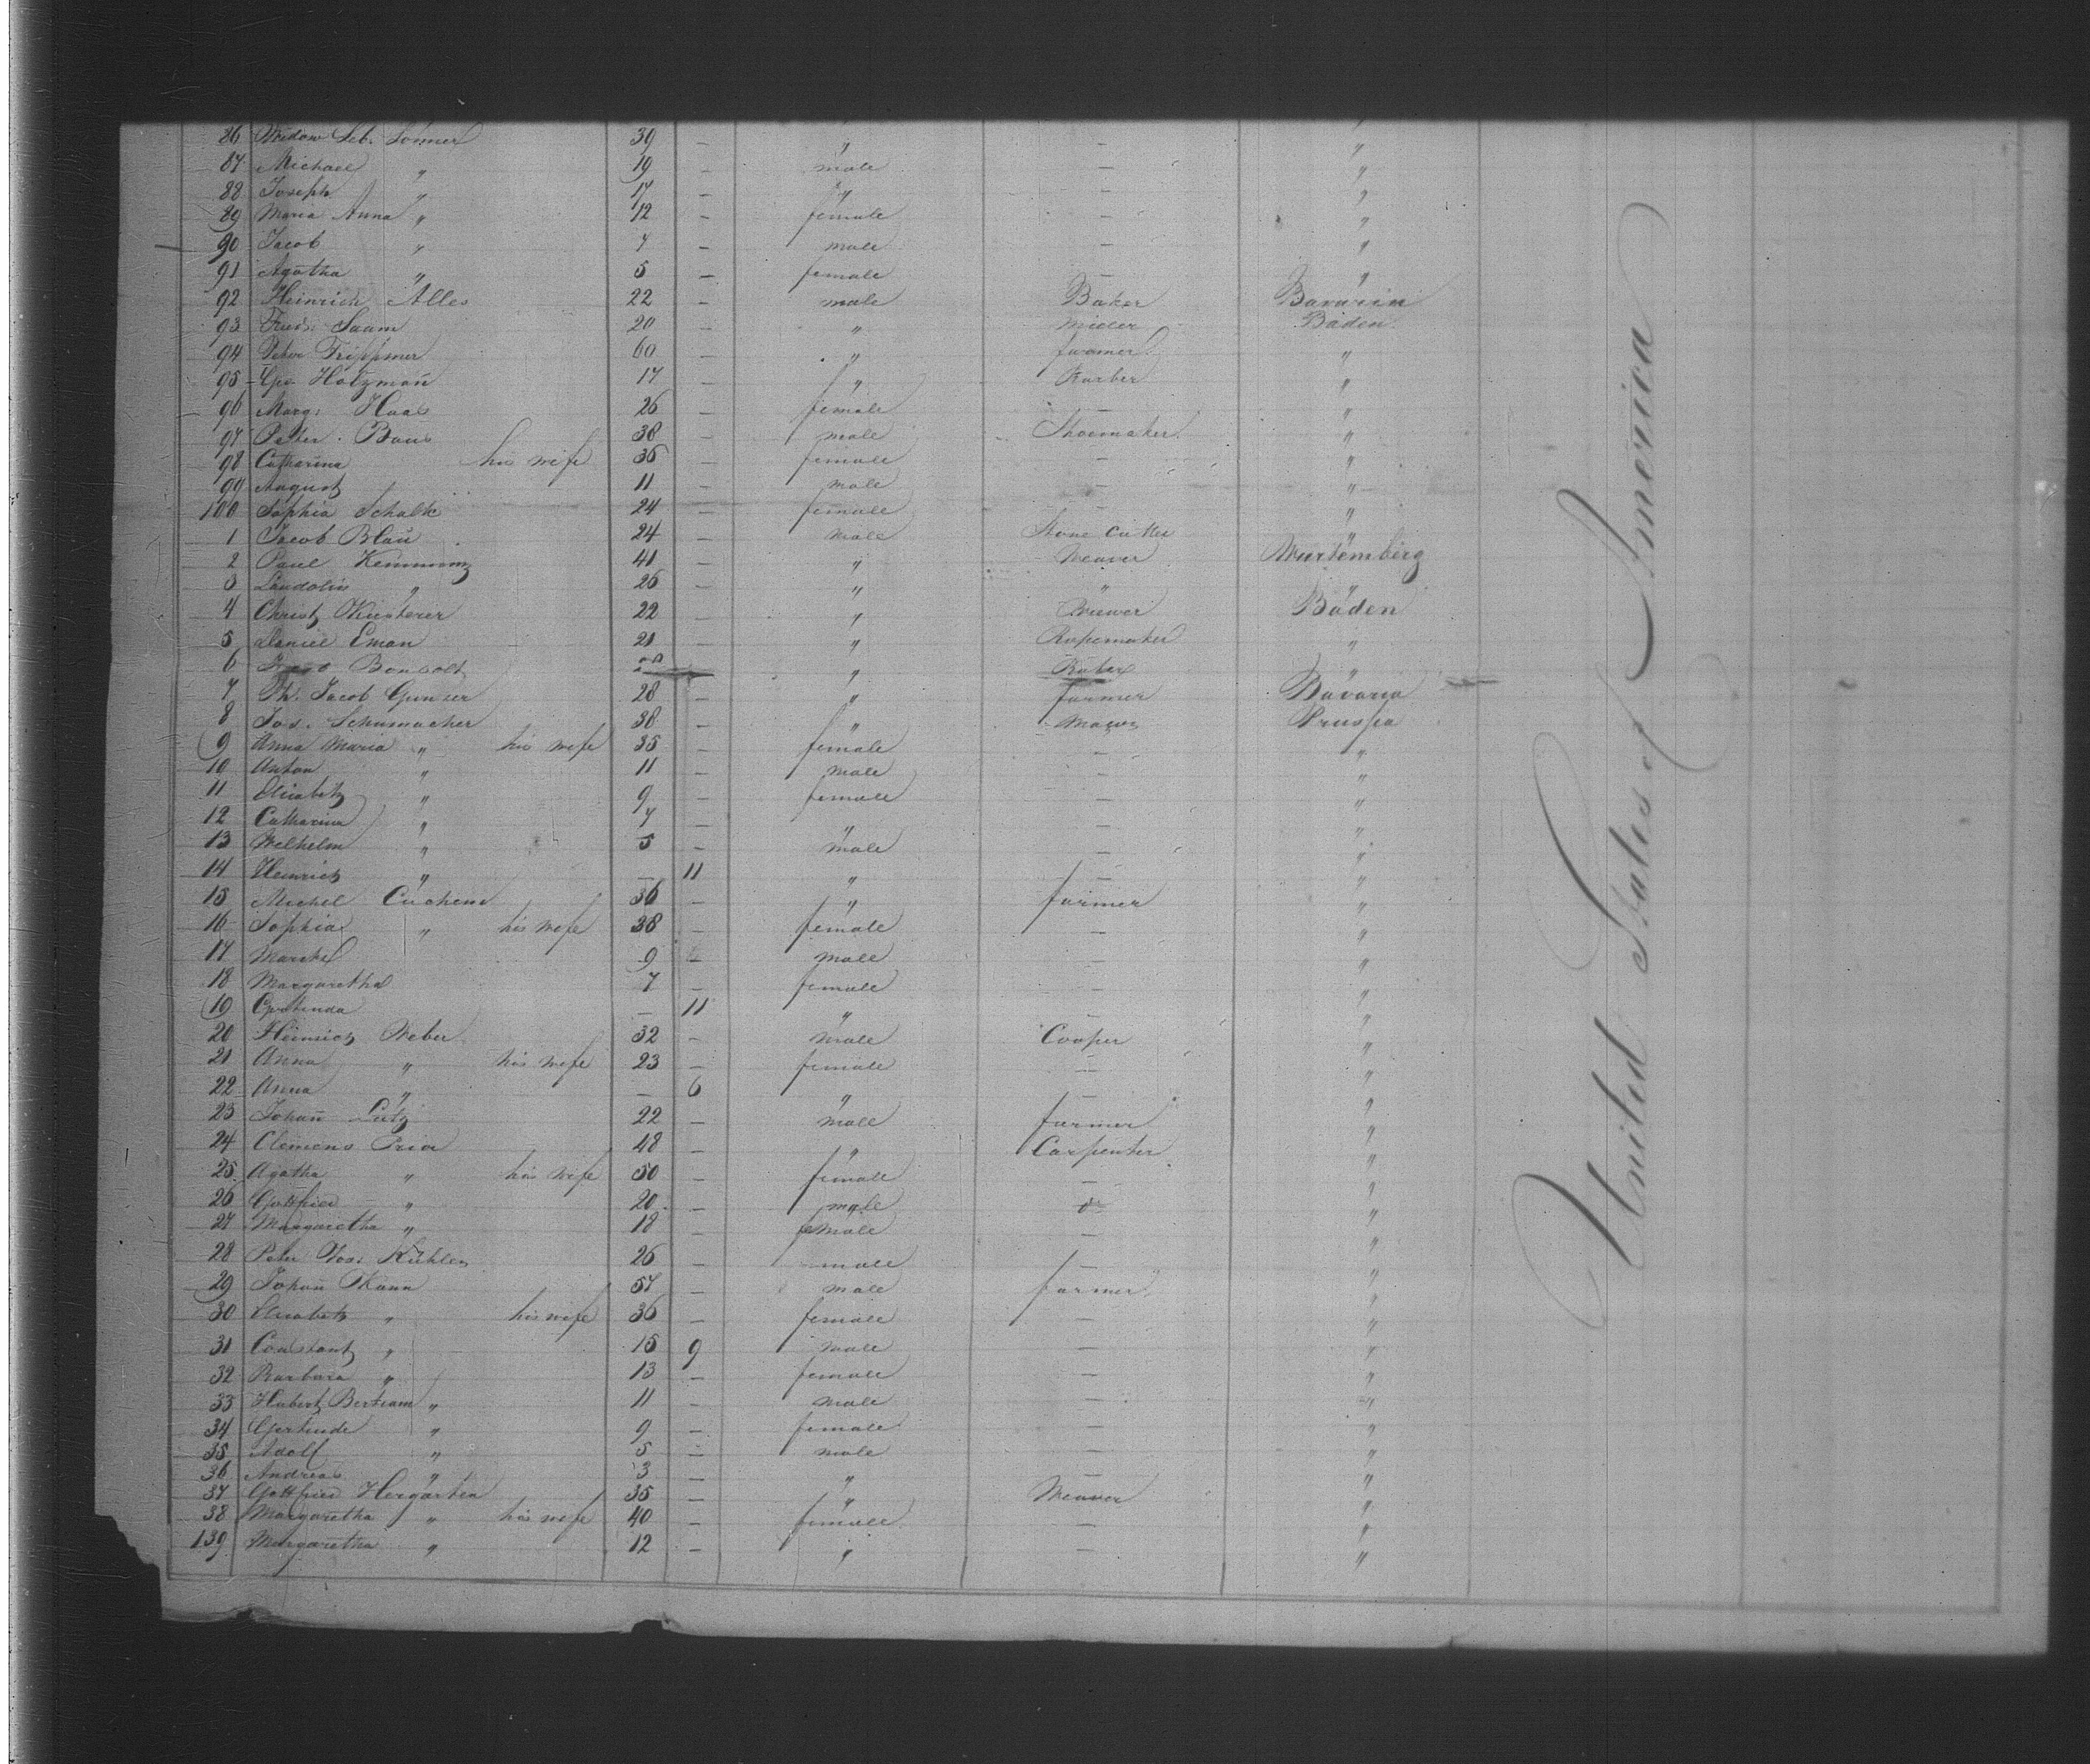 86 Wedow Seb. Sonner 39 – " – "
87 Michael " 19 – male – "
88 Joseph " 17 – " – "
89 Maria Anna " 12 – female – "
90 Jacob " 7 – male – "
91 Agatha " 5 – female – "
92 Heinrich Alles 22 – male Baker Bavaria
93 Fried. Saam 20 – " Baden
94 Peter 60 – " farmer "
95 Geo. Holzman̄ 17 – " "
96 Marg: Haas 26 – female – "
97 Peter Baus 38 – male Shoemaker "
98 Catharina his wife 36 – female – "
99 August 11 – male – "
100 Sophia Schalk 24 – female – "
1 Jacob Blau 24 – male Stone cutter "
2 Paul 41 – " Weaver Wurtemberg
3 Landolin " 26 – " " "
4 Christ 22 – " Brewer Baden
5 Daniel Eman 21 – " Ropemaker "
6 " "
7 Ph. Jacob 28 – " farmer Bavaria
8 Jos. Schumacher 38 – " Mason Prussia
9 Anna Maria " his wife 35 – female – "
10 Anton " 11 – male – "
11 Elisabeth " 9 – female – "
12 Catharina " 7 – " – "
13 Wilhelm " 5 – male – "
14 Heinrich " – 11 " – "
15 Michel 36 – " farmer "
16 Sophia " his wife 38 – female – "
17 9 – male – "
18 Margaretha 7 – female – "
19 – 11 " – "
20 Heinrich Weber 32 – male Cooper "
21 Anna " his wife 23 – female – "
22 Anna " – 6 " – "
23 Johan̄ Lutz 22 – male farmer "
24 Clemens Prior 48 – " Carpenter "
25 Agatha " his wife 50 – female – "
26 Gottfried " 20 – male do "
27 Margaretha " 18 – female – "
28 Peter Jos: 26 – male – "
29 Johan̄ 57 – male farmer "
30 Elisabeth " his wife 36 – female – "
31 Constant " 15 9 male – "
32 Barbara " 13 – female – "
33 Hubert Bertram " 11 – male – "
34 Gertrude " 9 – female – "
35 Adolf " 5 – male – "
36 Andreas " 3 – " – "
37 Gottfried Hergarten 35 – " Weaver "
38 Margaretha " his wife 40 – female – "
139 Margaretha " 12 – " – "
United States of America